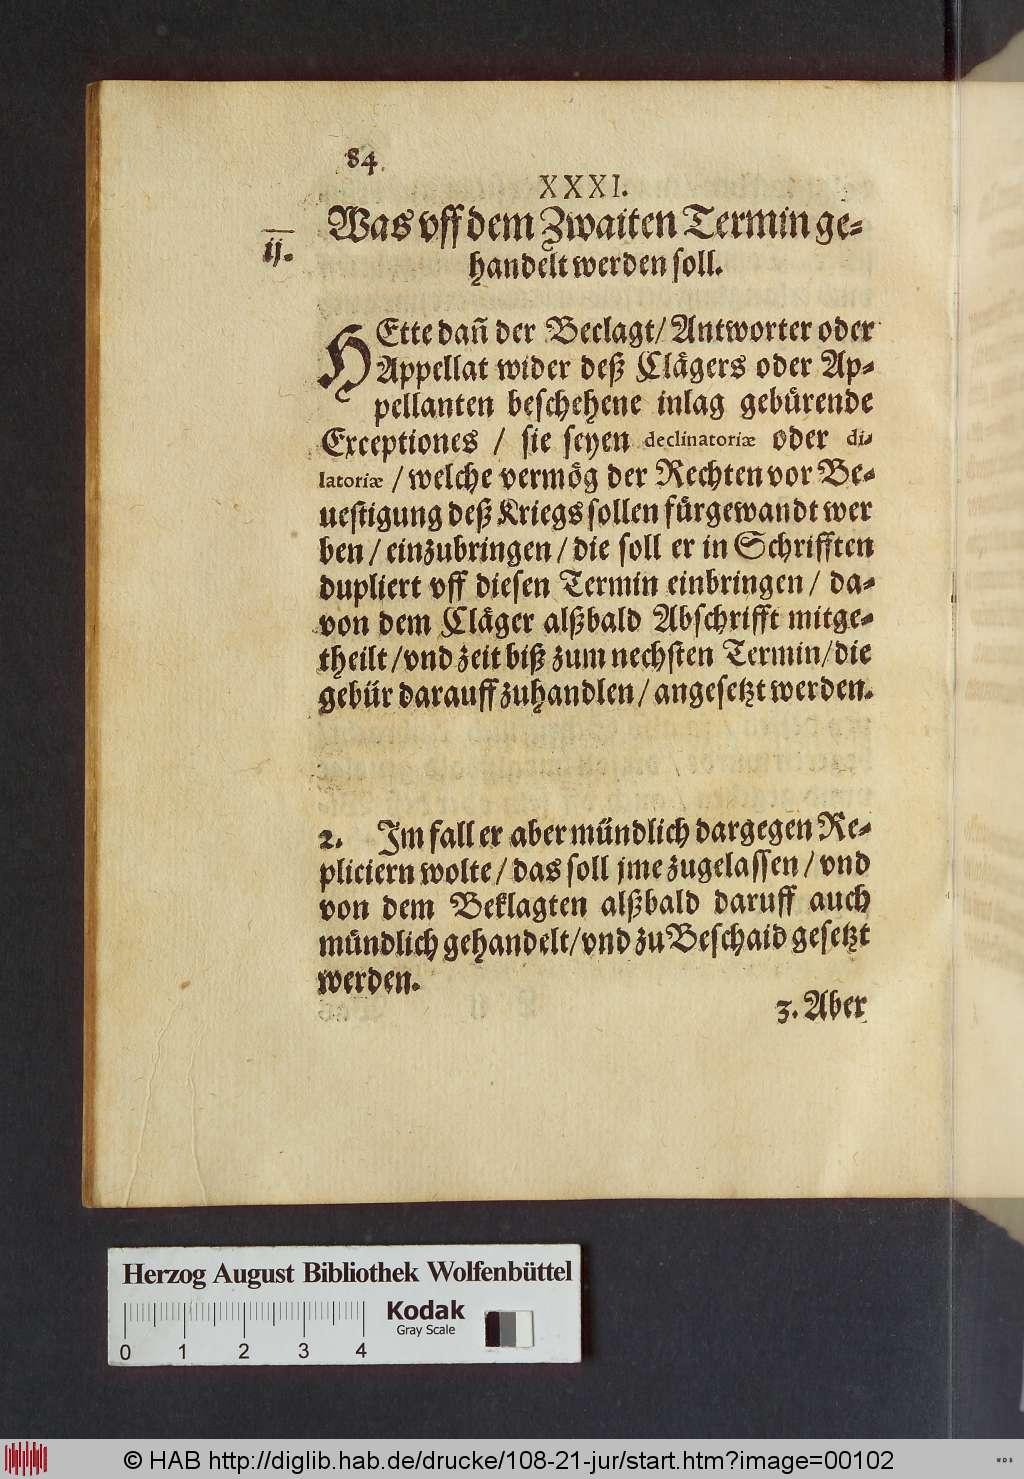 84
XXXI.
ij.
Was vff dem Zwaiten Termin ge-
handelt werden soll.
HEtte dañ der Beclagt/ Antworter oder
Appellat wider deß Clägers oder Ap-
pellanten beschehene inlag gebürende
Exceptiones / sie seyen declinatoriæ oder di-
latoriæ / welche vermög der Rechten vor Be-
uestigung deß Kriegs sollen fürgewandt wer
den / einzubringen / die soll er in Schrifften
dupliert vff diesen Termin einbringen / da-
von dem Cläger alßbald Abschrifft mitge-
theilt / vnd zeit biß zum nechsten Termin/ die
gebür darauff zuhandlen / angesetzt werden.
2. Im fall er aber mündlich dargegen Re-
pliciern wolte / das soll jme zugelassen / vnd
von dem Beklagten alßbald daruff auch
mündlich gehandelt/ vnd zu Beschaid gesetzt
werden.
3. Aber
Herzog August Bibliothek Wolfenbüttel
Kodak
Gray Scale
0 1 2 3 4
© HAB http://diglib.hab.de/drucke/108-21-jur/start.htm?image=00102